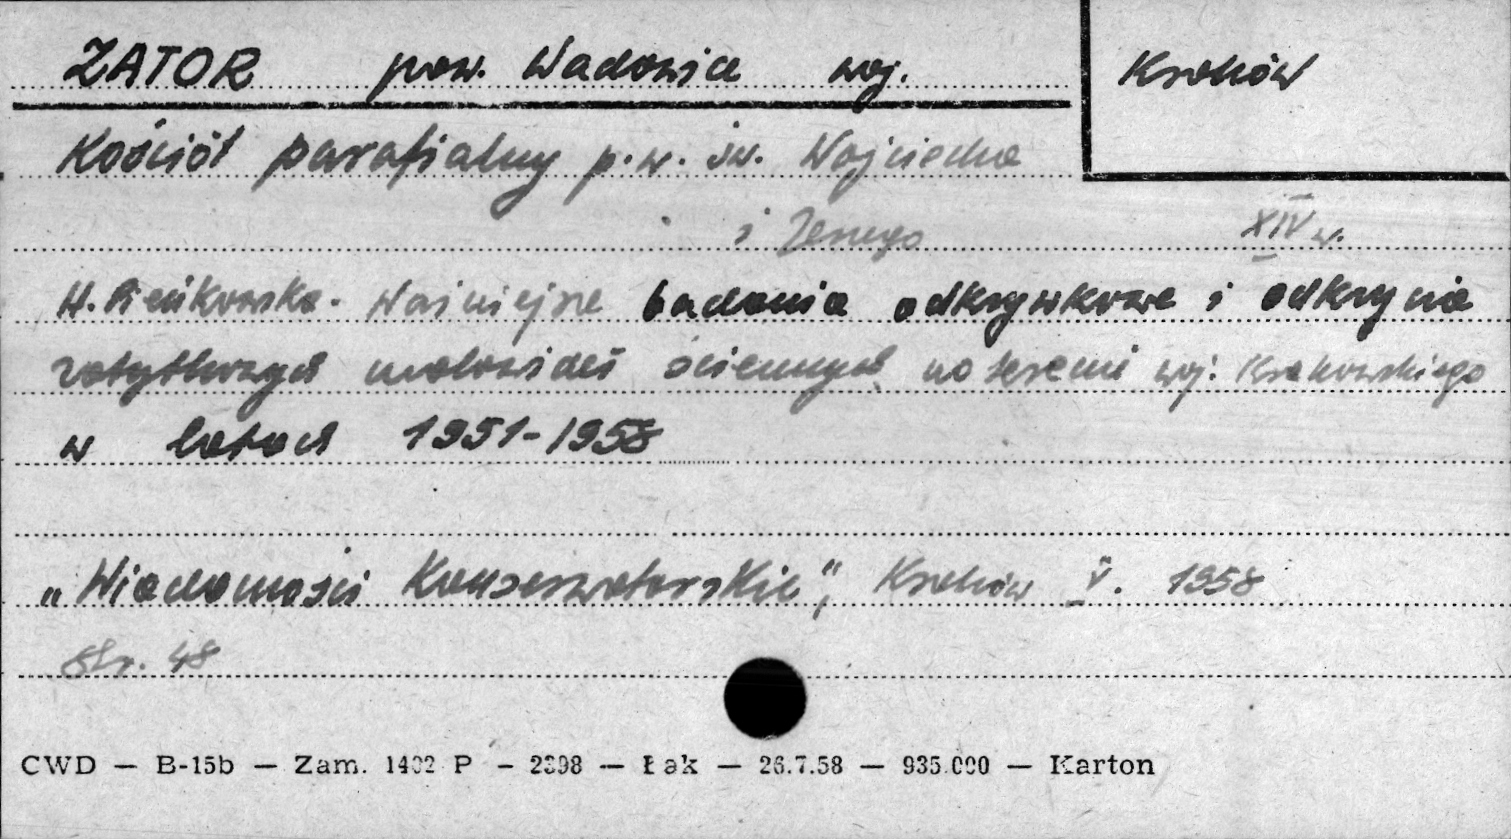 ZATOR pow. Wadowice woj. Kraków
Kościół parafialny p.w. św. Wojciecha
i Jerzego XIV w.
H. Pieńkowska. Ważniejsze badania odkrywkowe i odkrycia
zabytkowych malowideł ściennych na terenie woj. Krakowskiego
w latach 1951-1958
„Wiadomości Konserwatorskie", Kraków V. 1958
str. 48
CWD — B-15b — Zam. 1402 P — 2398 — Łak — 26.7.58 — 935.000 — Karton